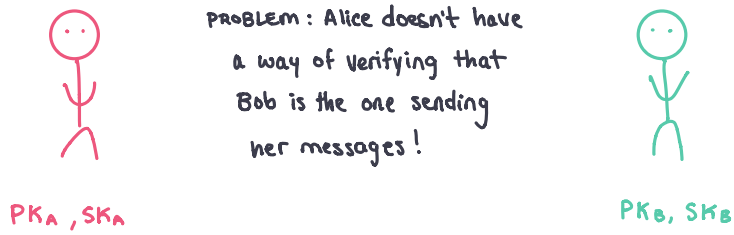 PROBLEM: Alice doesn't have
a way of verifying that
Bob is the one sending
her messages!
PKA, SKA
PKB, SKB